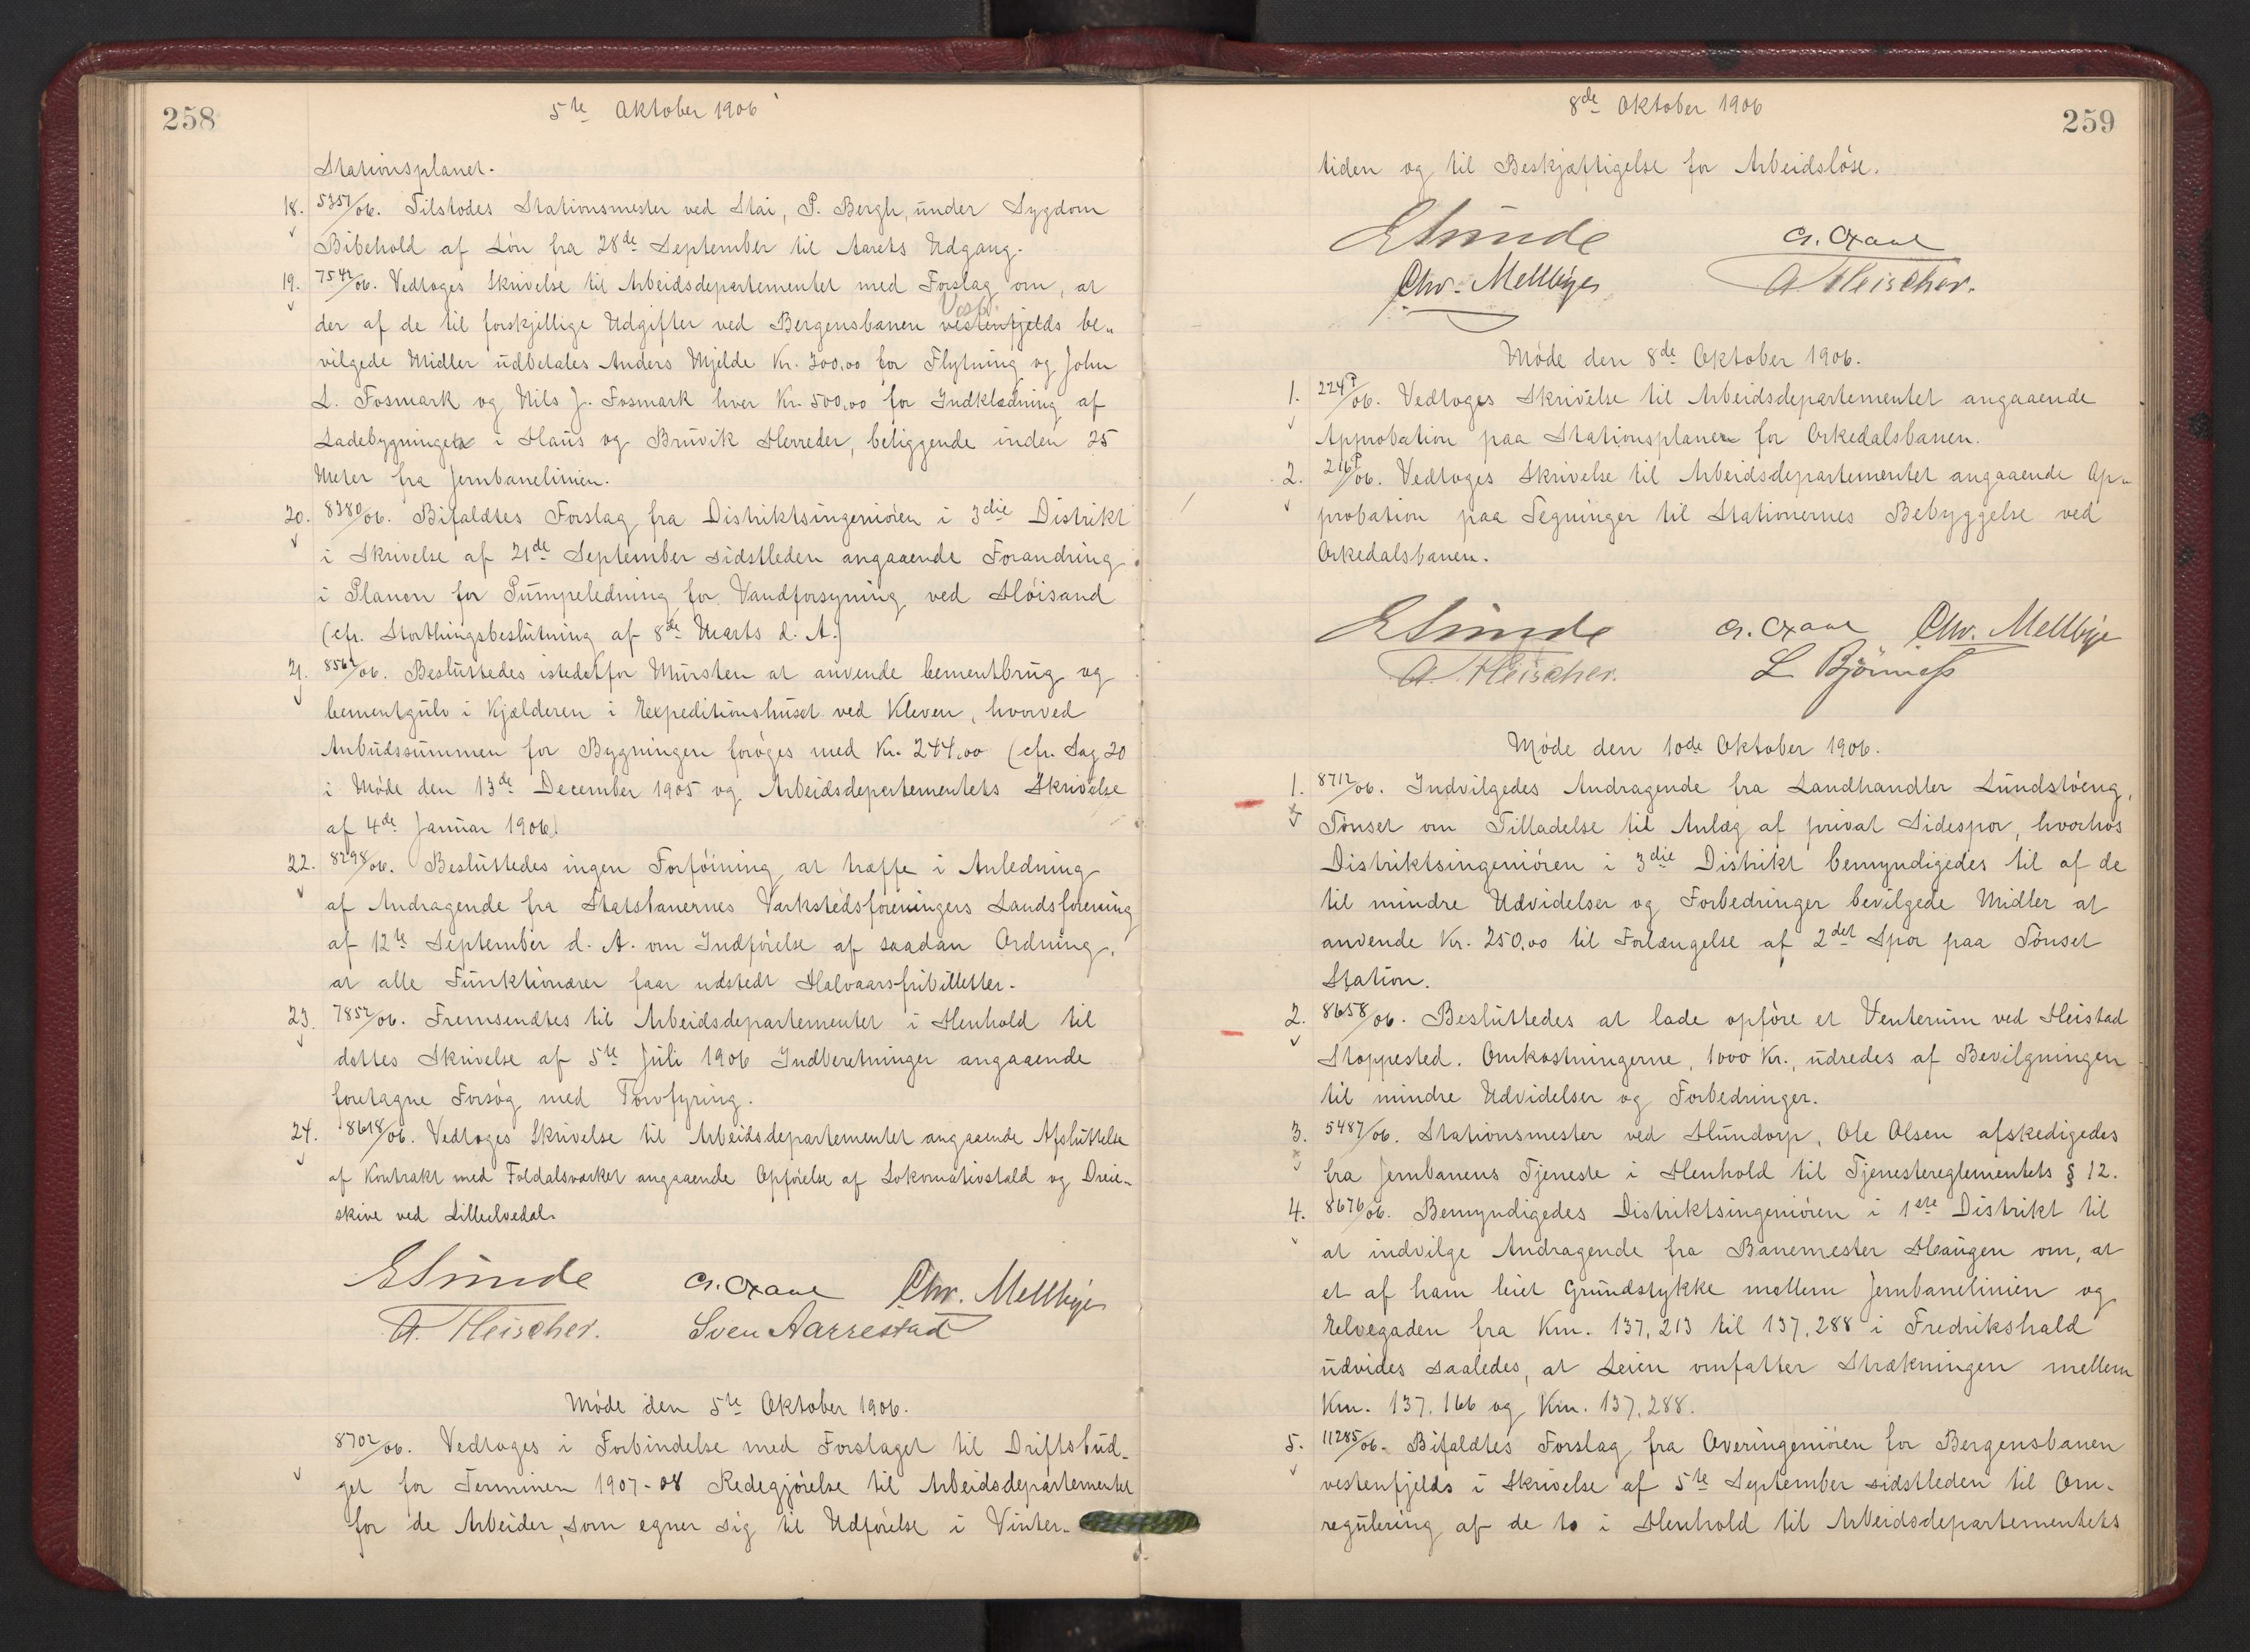 258
5te Oktober 1906
Stationsplanet.
18. 5357/06. Tilstodes Stationsmester ved Stai, P. Bergh, under Sygdom
Bibehold af Løn fra 28de September til Aarets Udgang.
19. 7542/06. Vedtoges Skrivelse til Arbeidsdepartementet med Forslag om, at
der af de til forskjellige Udgifter ved Bergensbanen vestenfjelds be-
vilgede Midler udbetales Anders Mjelde Kr. 300,00 for Flytning og John
L. Fosmark og Nils J. Fosmark hver Kr. 500,00 for Indklædning af
Ladebygninger i Haus og Bruvik Herreder, beliggende inden 25
Meter fra Jernbanelinien.
20. 8380/06. Bifaldtes Forslag fra Distriktsingeniøren i 3die Distrikt
i Skrivelse af 21de September sidstleden angaaende Forandring
i Planen for Pumpeledning for Vandforsyning ved Høisand
(cfr. Storthingsbeslutning af 8de Marts d. A.)
21. 8562/06. Besluttedes istedetfor Mursten at anvende Cementbrug og
Cementgulv i Kjælderen i Expeditionshuset ved Kleven, hvorved
Anbudssummen for Bygningen forøges med Kr. 244,00 (cfr. Sag 20
i Møde den 13de December 1905 og Arbeidsdepartementets Skrivelse
af 4de Januar 1906).
22. 8298/06. Besluttedes ingen Forføining at træffe i Anledning
af Andragende fra Statsbanernes Værkstedsforeningers Landsforening
af 12te September d. A. om Indførelse af saadan Ordning,
at alle Funktionærer faar udstedt Halvaarsfribilletter.
23. 7852/06. Fremsendtes til Arbeidsdepartementet i Henhold til
dettes Skrivelse af 5te Juli 1906 Indberetninger angaaende
foretagne Forsøg med Torvfyring.
24. 8618/06. Vedtoges Skrivelse til Arbeidsdepartementet angaaende Afsluttelse
af Kontrakt med Foldalsværket angaaende Opførelse af Lokomotivstald og Dreie-
skive ved Lilleelvedal.
E Sunde Chr. Mellbye
A. Fleischer. Sven Aarrestad
Møde den 5te Oktober 1906.
8702/06. Vedtoges i Forbindelse med Forslaget til Driftsbud-
get for Terminen 1907-08 Redegjørelse til Arbeidsdepartementet
for de Arbeider, som egner sig til Udførelse i Vinter-
8de Oktober 1906
259
tiden og til Beskjæftigelse for Arbeidsløse.
E Sunde
Chr. Mellbye A. Fleischer.
Møde den 8de Oktober 1906.
1. 224P/06. Vedtoges Skrivelse til Arbeidsdepartementet angaaende
Approbation paa Stationsplaner for Orkedalsbanen.
2. 216P/06. Vedtoges Skrivelse til Arbeidsdepartementet angaaende Ap-
probation paa Tegninger til Stationernes Bebyggelse ved
Orkedalsbanen.
E Sunde Chr. Mellbye
A. Fleischer. L Bjørness
Møde den 10de Oktober 1906.
1. 8712/06. Indvilgedes Andragende fra Landhandler Lundstøeng,
Tønset om Tilladelse til Anlæg af privat Sidespor, hvorhos
Distriktsingeniøren i 3die Distrikt bemyndigedes til af de
til mindre Udvidelser og Forbedringer bevilgede Midler at
anvende Kr. 250,00 til Forlængelse af 2det Spor paa Tønset
Station.
2. 8658/06. Besluttedes at lade opføre et Venterum ved Heistad
Stoppested. Omkostningerne, 1000 Kr., udredes af Bevilgningen
til mindre Udvidelser og Forbedringer.
3. 5487/06. Stationsmester ved Hundorp, Ole Olsen afskedigedes
fra Jernbanens Tjeneste i Henhold til Tjenestereglementets § 12.
4. 8676/06. Bemyndigedes Distriktsingeniøren i 1ste Distrikt til
at indvilge Andragende fra Banemester Haugen om, at
et af ham leiet Grundstykke mellem Jernbanelinien og
Elvegaden fra Km. 137,213 til 137,288 i Fredrikshald
udvides saaledes, at Leien omfatter Strækningen mellem
Km. 137,166 og Km. 137,288.
5. 11285/06. Bifaldtes Forslag fra Overingeniøren for Bergensbanen
vestenfjelds i Skrivelse af 5te September sidstleden til Om-
regulering af de to i Henhold til Arbeidsdepartementets